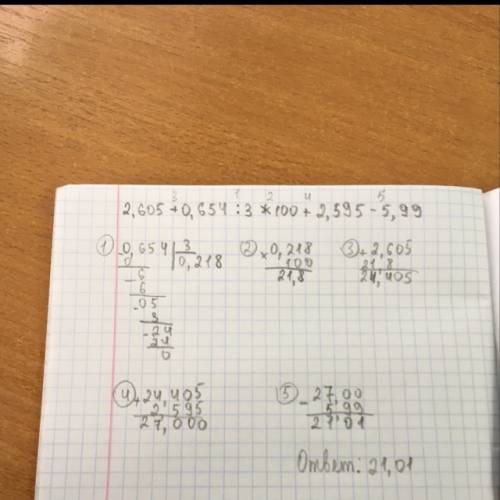 3 1 2 4 5
2,605 + 0,654 : 3 * 100 + 2,595 - 5,99
① 0,654 | 3
0 | 0,218
- 6
6
- 05
3
- 24
24
0
② × 0,218
100
21,8
③ + 2,605
21,8
24,405
④ + 24,405
2,595
27,000
⑤ - 27,00
5,99
21,01
Ответ: 21,01